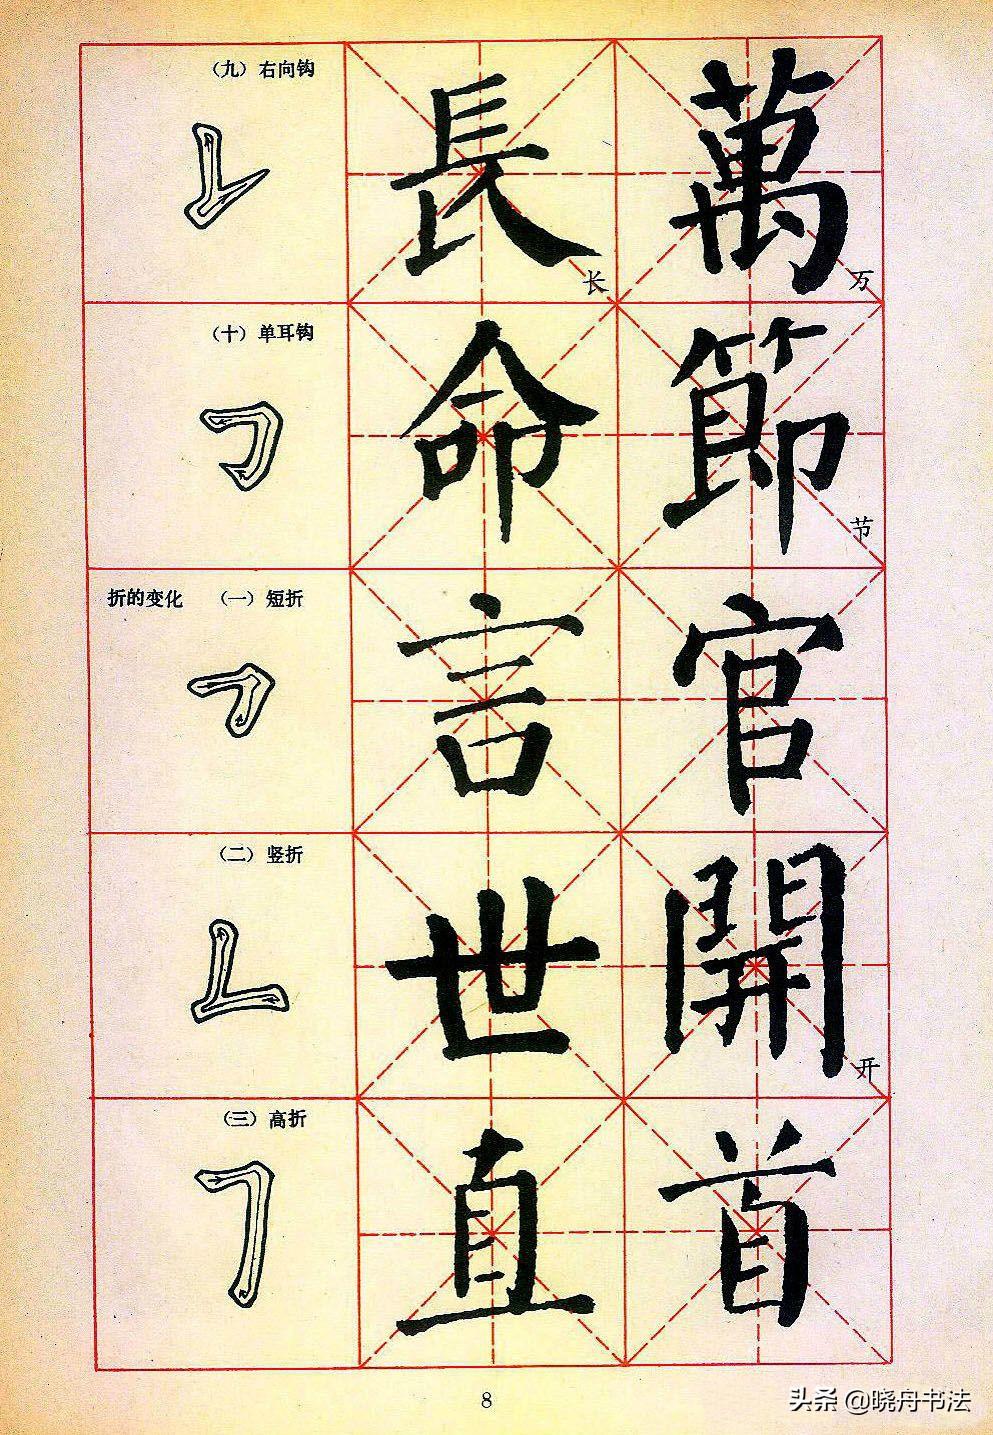 （九）右向钩
長 萬
长 万
（十）单耳钩
命 節
节
折的变化 （一）短折
言 官
（二）竖折
世 開
开
（三）高折
直 首
8
头条 @晓舟书法